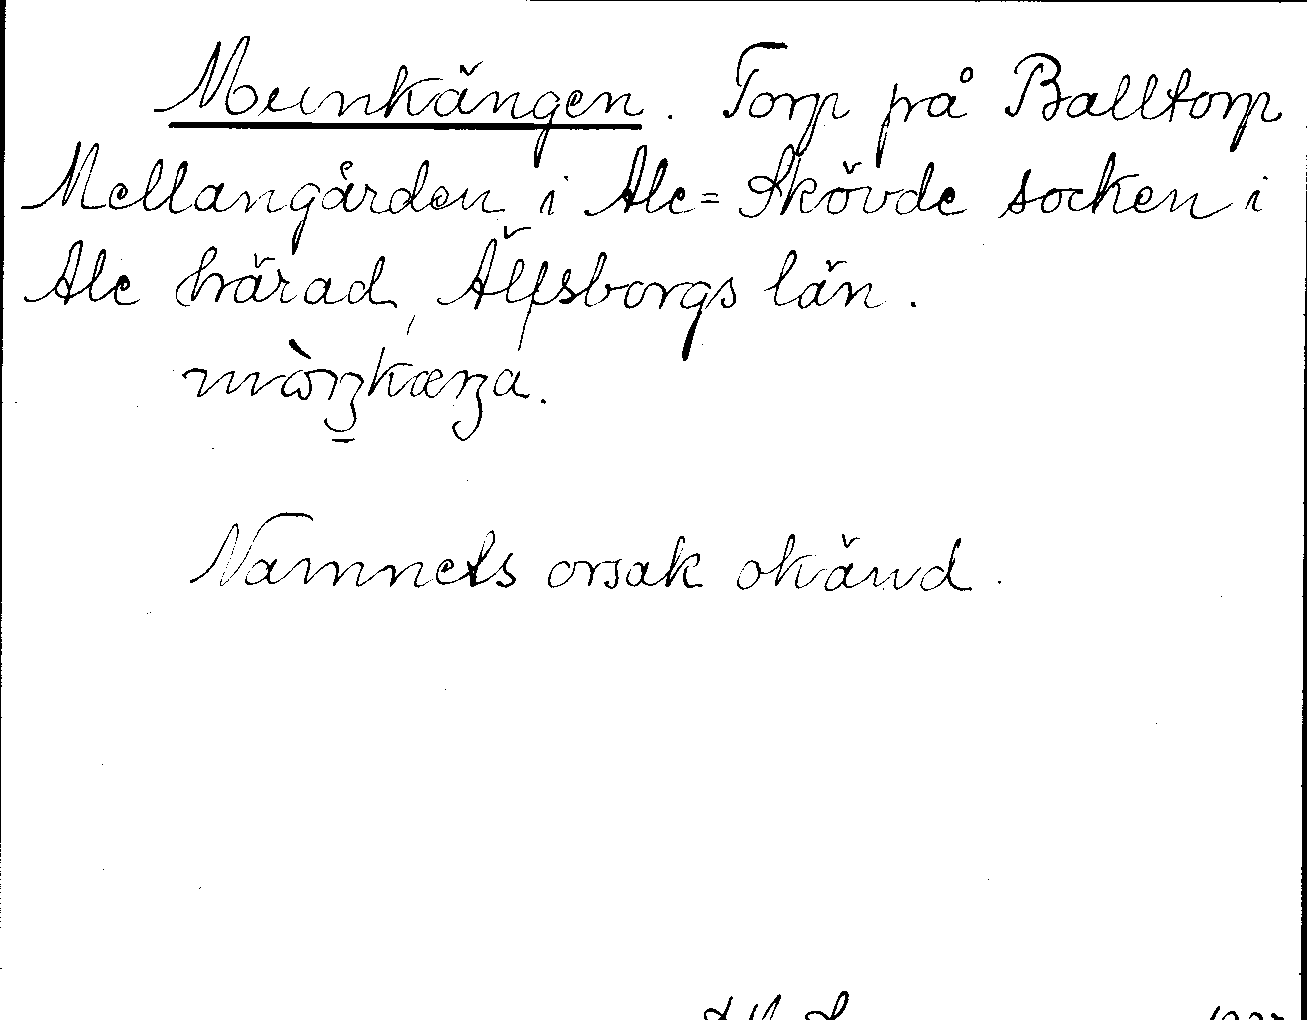 Munkängen. Torp på Balltorp
Mellangården i Ale=Skövde socken i
Ale härad, Älfsborgs län.
mὼŋkæŋa.
Namnets orsak okänd.